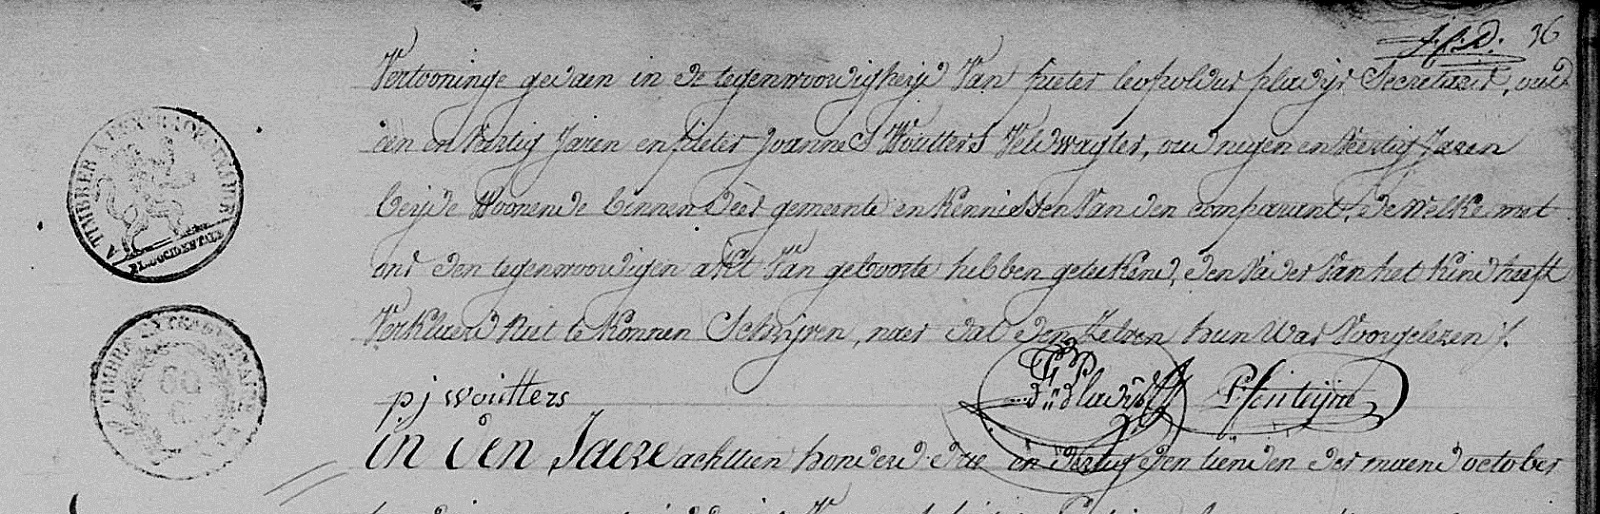 36
Vertooninge gedaen in de tegenwoordigheyd Van pieter leopoldus pladijs Secretaris, oud
een en Veertig Jaren en pieter Joannes Woutters Veldwagter, oud negen en Veertig Jaren
beijde Woonende binnen deës gemeente en Kennissen Van den comparant, de welke met
ons den tegenwoordigen akt Van geboorte hebben geteekend, den Vader Van het Kind heeft
Verklaerd Niet te konnen Schrijven, naer dat den Zelven hun Was Voorgelezen
pj woutters
in den Jaere achttien honderd drie en dertig den tienden der maend october
A TIMBER
EXTRAORDINAIRE
FL. OCCIDENTALE
TIMBRE EXTRAORDINAIRE